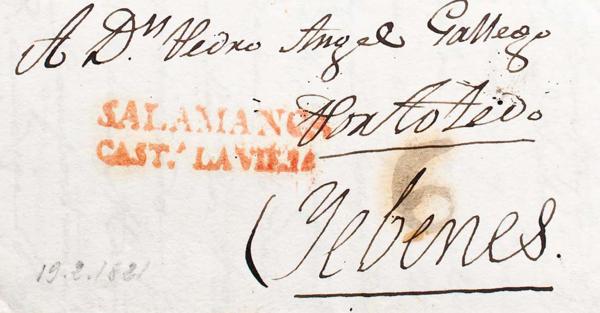 A Dⁿ Pedro Angel Gallego
SALAMANCA
CAST.ᴬ LA VIEJA
Por Toledo
6
(Yebenes.
19.2.1821